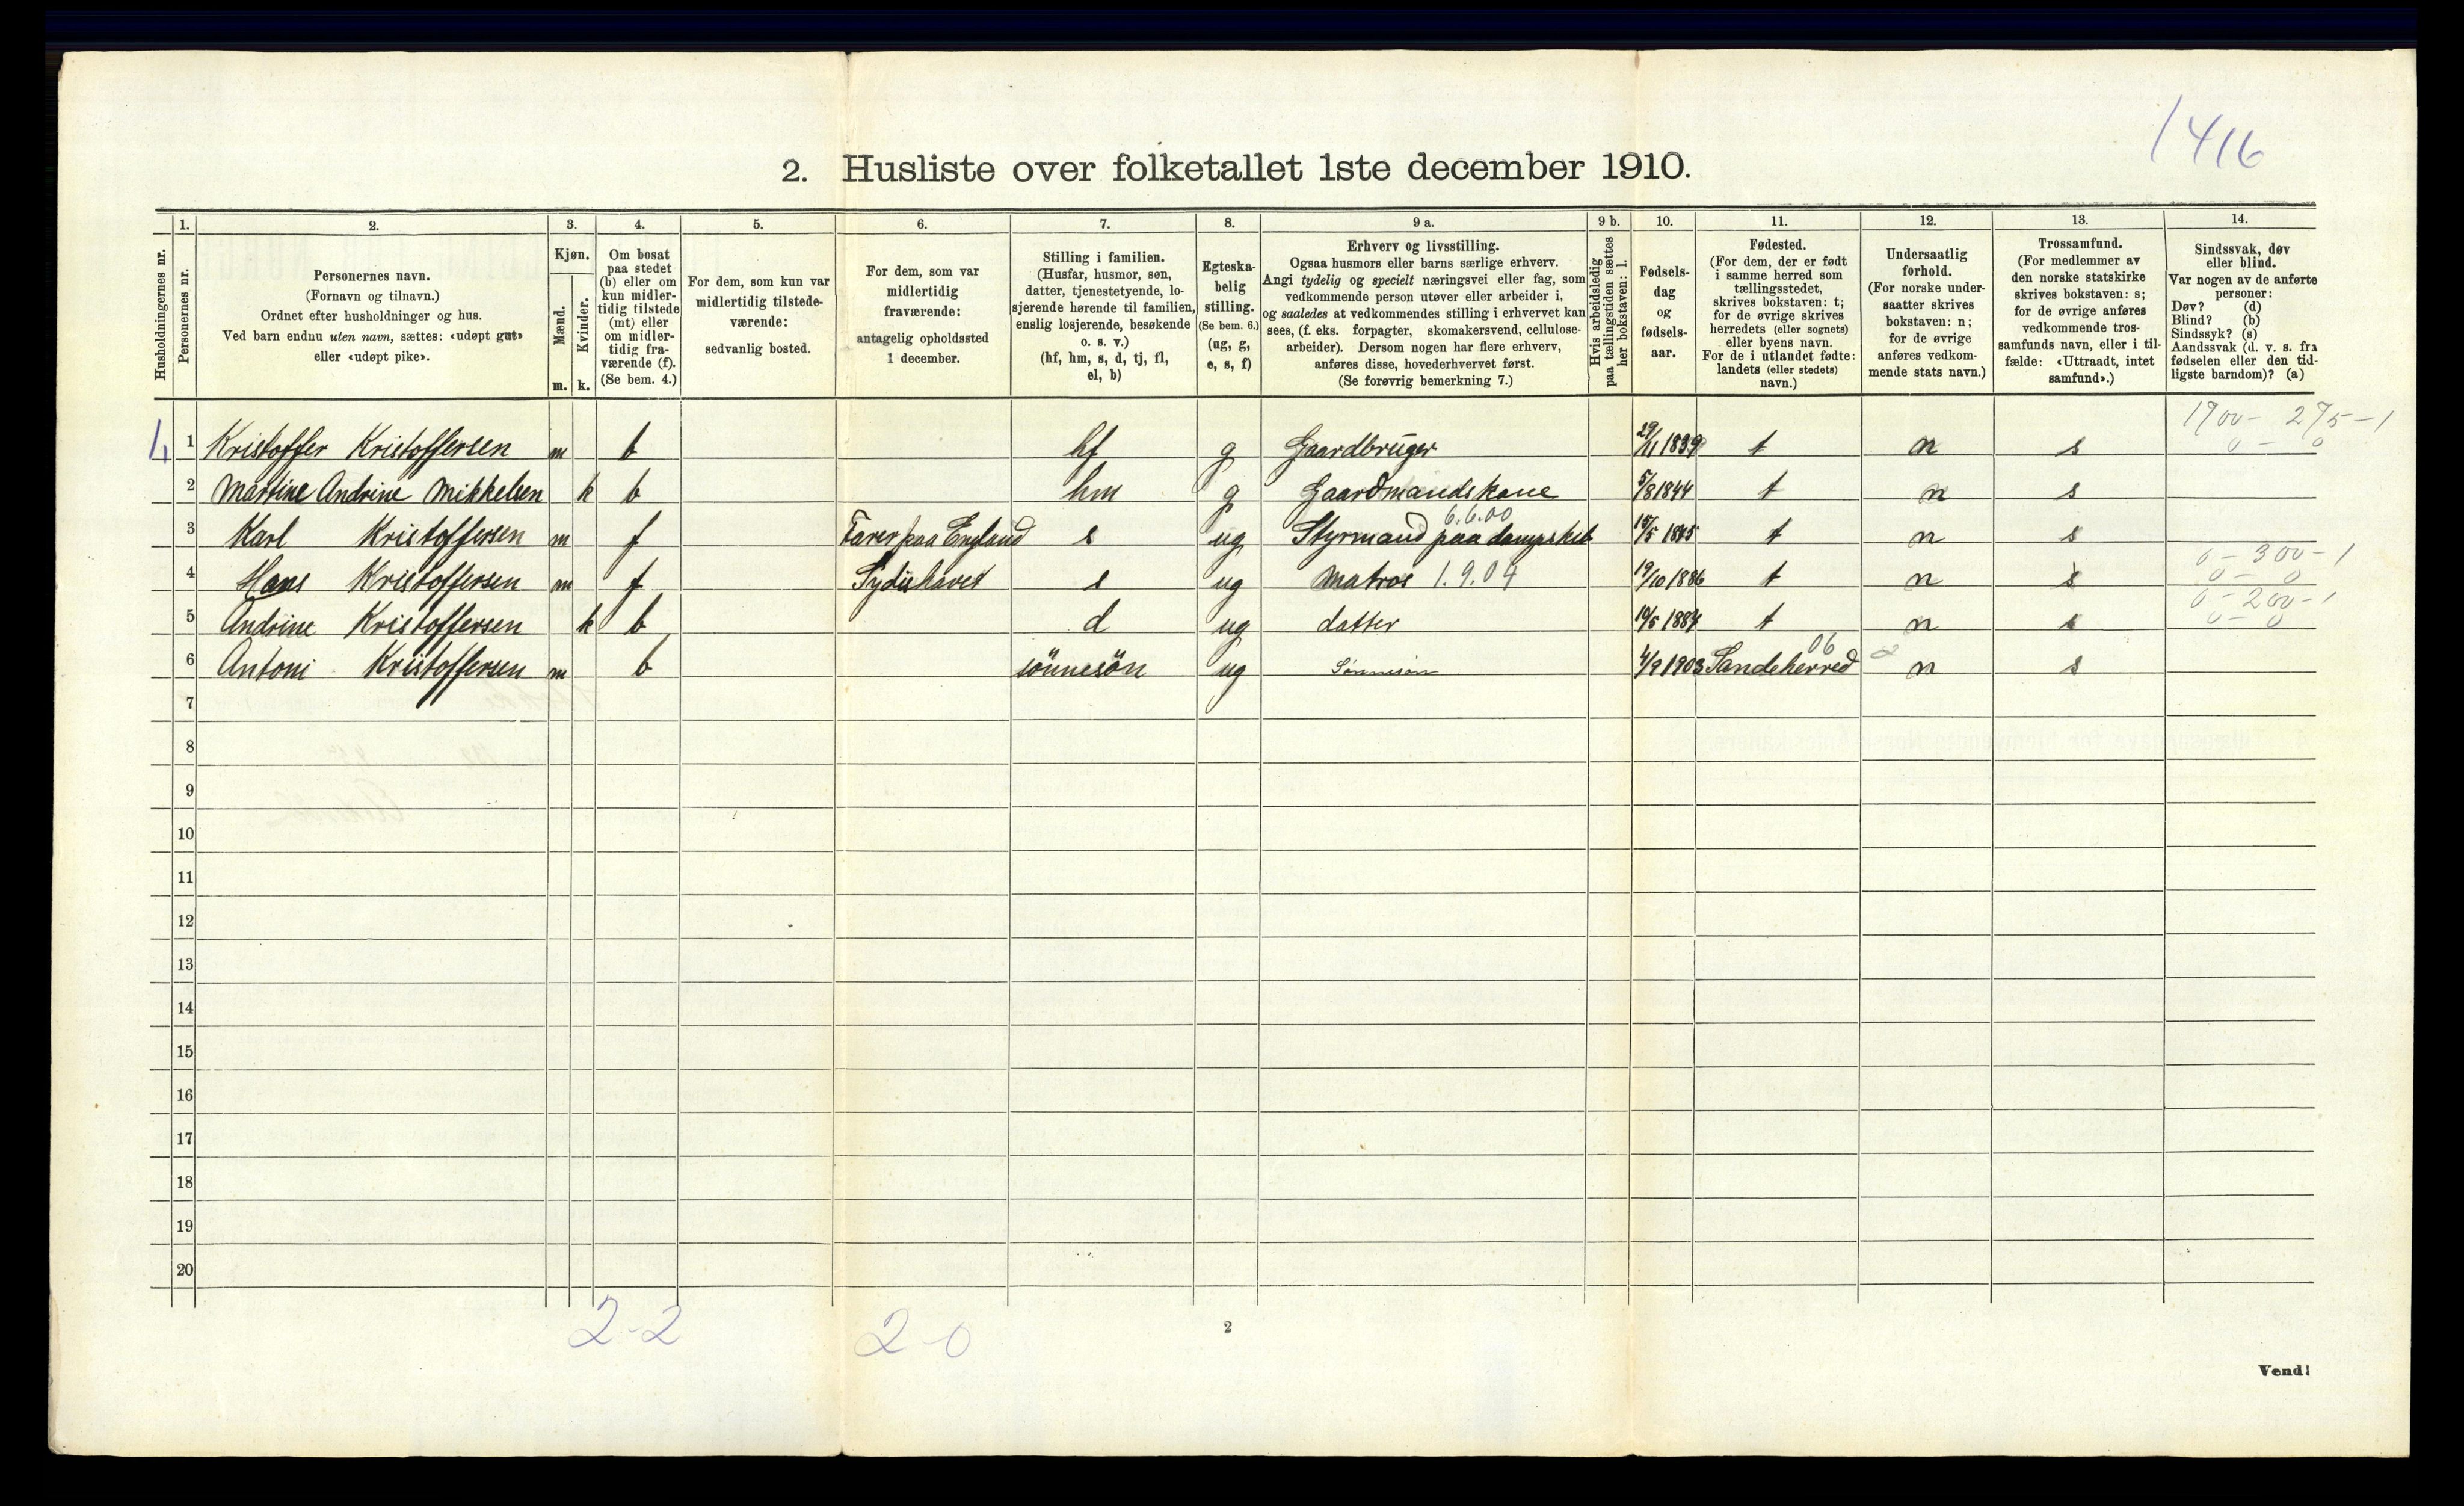 1416
2. Husliste over folketallet 1ste december 1910.
Husholdningernes nr.
1. Personernes nr.
2. Personernes navn.
(Fornavn og tilnavn.)
Ordnet efter husholdninger og hus.
Ved barn endnu uten navn, sættes: «udøpt gut»
eller «udøpt pike».
3. Kjøn.
Mænd. m.
Kvinder. k.
4. Om bosat
paa stedet
(b) eller om
kun midler-
tidig tilstede
(mt) eller
om midler-
tidig fra-
værende (f).
(Se bem. 4.)
5. For dem, som kun var
midlertidig tilstede-
værende:
sedvanlig bosted.
6. For dem, som var
midlertidig
fraværende:
antagelig opholdssted
1 december.
7. Stilling i familien.
(Husfar, husmor, søn,
datter, tjenestetyende, lo-
sjerende hørende til familien,
enslig losjerende, besøkende
o. s. v.)
(hf, hm, s, d, tj, fl,
el, b)
8. Egteska-
belig
stilling.
(Se bem. 6.)
(ug, g,
e, s, f)
9 a. Erhverv og livsstilling.
Ogsaa husmors eller barns særlige erhverv.
Angi tydelig og specielt næringsvei eller fag, som
vedkommende person utøver eller arbeider i,
og saaledes at vedkommendes stilling i erhvervet kan
sees, (f. eks. forpagter, skomakersvend, cellulose-
arbeider). Dersom nogen har flere erhverv,
anføres disse, hovederhvervet først.
(Se forøvrig bemerkning 7.)
9 b. Hvis arbeidsledig
paa tællingstiden sættes
her bokstaven: l.
10. Fødsels-
dag
og
fødsels-
aar.
11. Fødested.
(For dem, der er født
i samme herred som
tællingsstedet,
skrives bokstaven: t;
for de øvrige skrives
herredets (eller sognets)
eller byens navn.
For de i utlandet fødte:
landets (eller stedets)
navn.)
12. Undersaatlig
forhold.
(For norske under-
saatter skrives
bokstaven: n;
for de øvrige
anføres vedkom-
mende stats navn.)
13. Trossamfund.
(For medlemmer av
den norske statskirke
skrives bokstaven: s;
for de øvrige anføres
vedkommende tros-
samfunds navn, eller i til-
fælde: «Uttraadt, intet
samfund».)
14. Sindssvak, døv
eller blind.
Var nogen av de anførte
personer:
Døv? (d)
Blind? (b)
Sindssyk? (s)
Aandssvak (d. v. s. fra
fødselen eller den tid-
ligste barndom)? (a)
1900 - 275 - 1
1 Kristoffer Kristoffersen m b hf g Gaardbruger 29/11 1839 t n s 0 - 0
2 Martine Andrine Mikkelsen k b hm g Gaardmandskone 5/8 1844 t n s
6.6.00
3 Karl Kristoffersen m f Farer paa England s ug Styrmand paa dampskib 15/5 t n s
0 - 300 - 1
4 Hans Kristoffersen m f Sydishavet s ug Matros 1.9.04 19/10 1886 t n s 0 - 0
0 - 200 - 1
5 Andrine Kristoffersen k b d ug datter t n s 0 - 0
06
6 Antoni Kristoffersen m b sönnesön ug Sønnesøn 4/9 1903 Sandeherred n s
7
8
9
10
11
12
13
14
15
16
17
18
19
20
2-2 2-0
2
Vend!